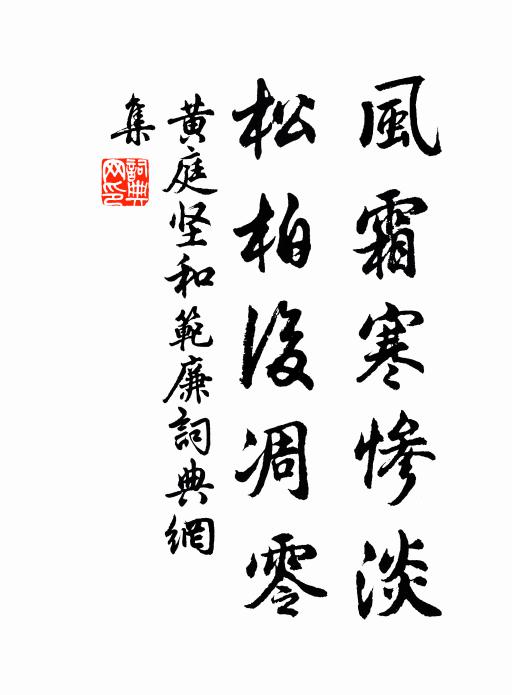 風霜寒慘淡
松柏後凋零
黄庭坚和範廉詞典網
集
詞典网印